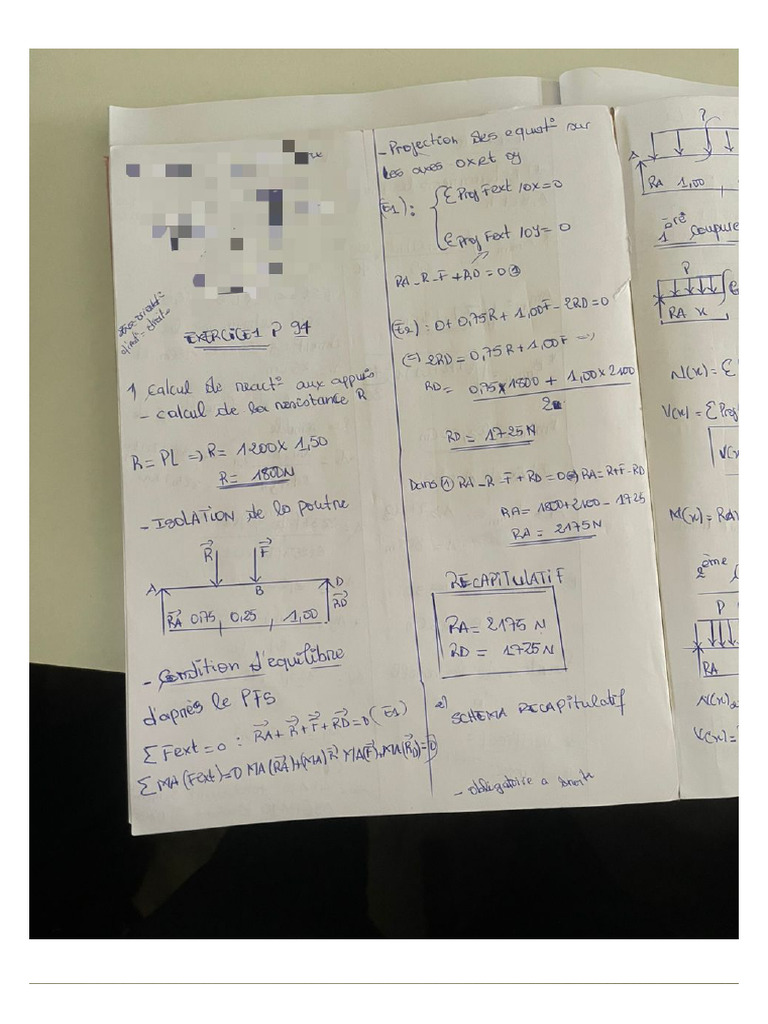 EXERCICE 1 P 94
1, Calcul de react° aux appuis
- calcul de la resistance R
R = PL => R = 1200 x 1,50
R = 1800N
- ISOLATION de la poutre
R F
A B D
RA 0,75 , 0,25 , 1,00 RD
- Condition d'equilibre
d'après le PFS
Σ Fext = 0 : RA + R + F + RD = 0 (E1)
Σ MA (Fext) = 0 MA (RA) + (MA) R MA(F) + MA(RD) = 0
- Projection des equat° sur
les axes ox et oy
(E1) : { Σ Proj Fext /OX = 0
Σ Proj Fext /OY = 0
RA - R - F + RD = 0 ①
(E2) : 0 + 0,75R + 1,00F - 2RD = 0
(=) 2RD = 0,75R + 1,00F =>
RD = 0,75 x 1800 + 1,00 x 2100
2
RD = 1725 N
Dans ① RA - R - F + RD = 0 RA = R+F-RD
RA = 1800 + 2100 - 1725
RA = 2175 N
RECAPITULATIF
RA = 2175 N
RD = 1725 N
2) SCHEMA RECAPITULATIF
- obligatoire a droite
P
A
RA 1,00 ,
1ere coupure
P
RA x
N(x) = Σ
V(x) = Σ Proj
V(x
M(x) = RA
2ème
P
RA
N(x)
V(x) =